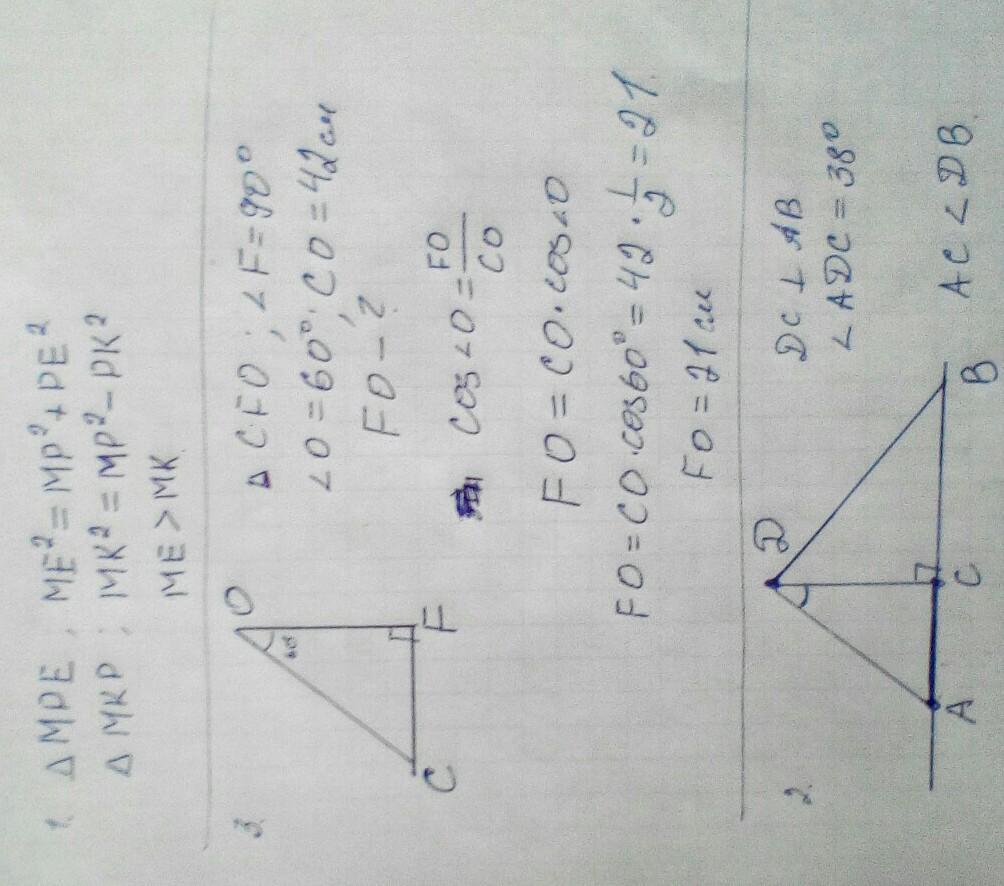 1. Δ MPE ; ME² = MP² + PE²
Δ MKP ; MK² = MP² - PK²
ME > MK
3.
O
60
C
F
Δ CFO ; ∠F = 90°
∠O = 60°; CO = 42 см
FO - ?
cos∠O = FO/CO
FO = CO · cos∠O
FO = CO · cos60° = 42 · 1/2 = 21.
FO = 21 см
2.
D
A
C
B
DC ⊥ AB
∠ADC = 38°
AC < DB.